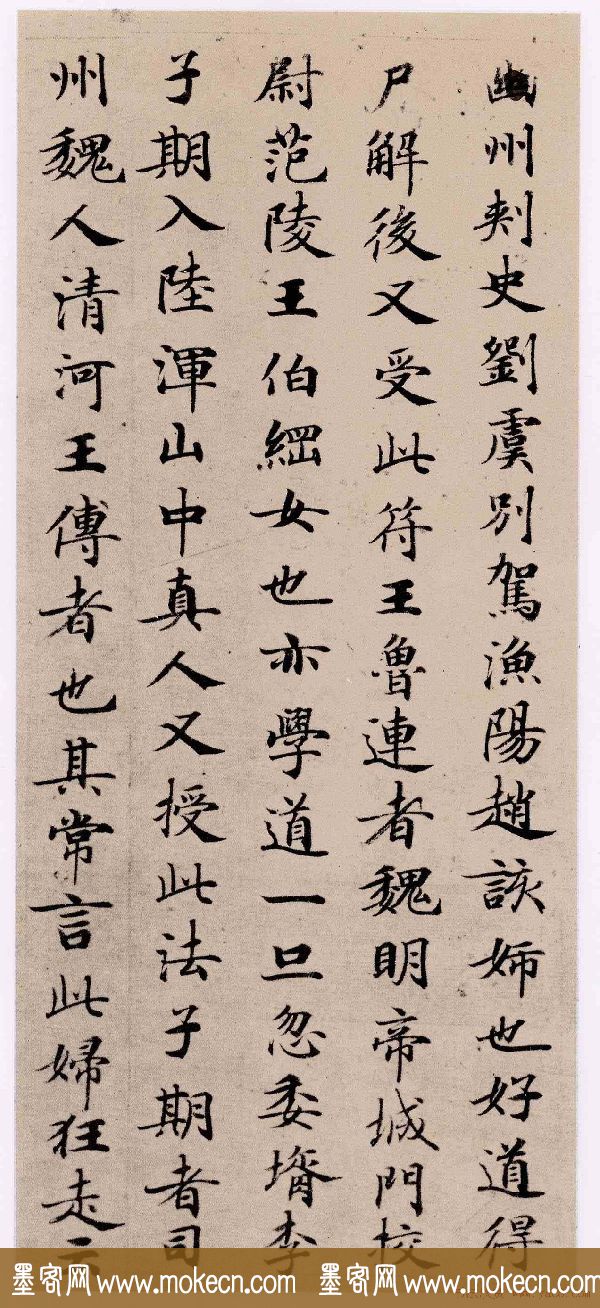 幽州刾史劉虞別駕漁陽趙該姉也好道得
尸解後又受此符王魯連者魏明帝城門校
尉范陵王伯綱女也亦學道一旦忽委壻李
子期入陸渾山中真人又授此法子期者司
州魏人清河王傅者也其常言此婦狂走云
墨客网 www.mokecn.com 墨客网 www.mokecn.com